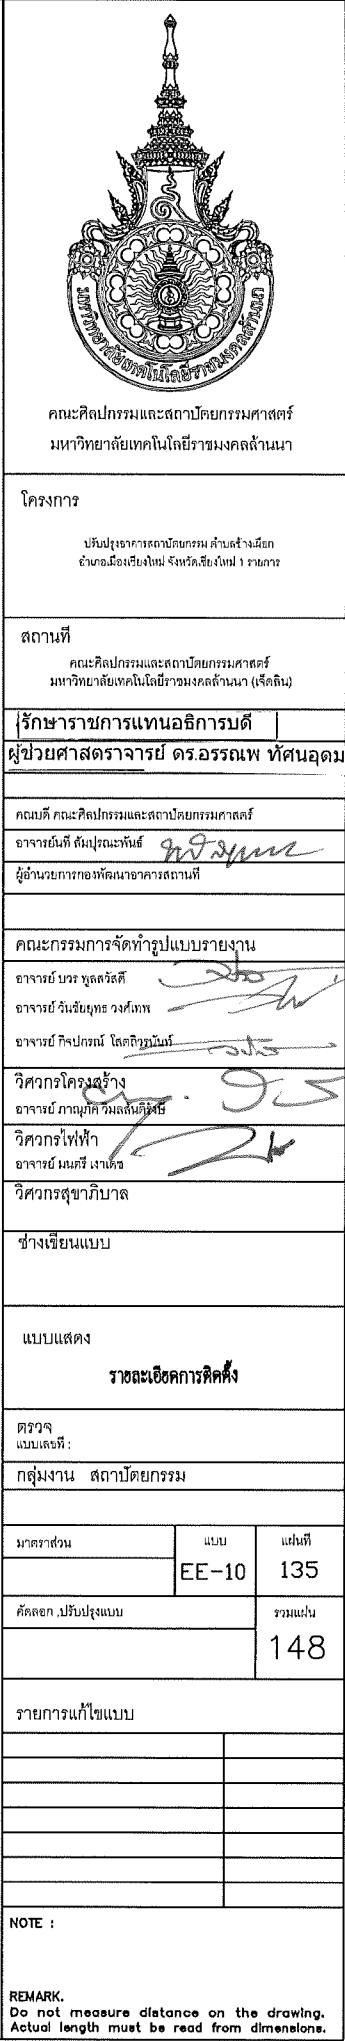 มหาวิทยาลัยเทคโนโลยีราชมงคลล้านนา
คณะศิลปกรรมและสถาปัตยกรรมศาสตร์
มหาวิทยาลัยเทคโนโลยีราชมงคลล้านนา
โครงการ
ปรับปรุงอาคารสถาปัตยกรรม ตำบลช้างเผือก
อำเภอเมืองเชียงใหม่ จังหวัดเชียงใหม่ 1 รายการ
สถานที่
คณะศิลปกรรมและสถาปัตยกรรมศาสตร์
มหาวิทยาลัยเทคโนโลยีราชมงคลล้านนา (เจ็ดลิน)
รักษาราชการแทนอธิการบดี
ผู้ช่วยศาสตราจารย์ ดร.อรรณพ ทัศนอุดม
คณบดี คณะศิลปกรรมและสถาปัตยกรรมศาสตร์
อาจารย์นที สัมปุรณะพันธ์
ผู้อำนวยการกองพัฒนาอาคารสถานที่
คณะกรรมการจัดทำรูปแบบรายงาน
อาจารย์ บวร พูลสวัสดิ์
อาจารย์ วันชัยยุทธ วงศ์เทพ
อาจารย์ กิจปกรณ์
วิศวกรโครงสร้าง
อาจารย์ ภาณุภัค
วิศวกรไฟฟ้า
อาจารย์ มนตรี เงาเดช
วิศวกรสุขาภิบาล
ช่างเขียนแบบ
แบบแสดง
รายละเอียดการติดตั้ง
ตรวจ
แบบเลขที่ :
กลุ่มงาน สถาปัตยกรรม
มาตราส่วน แบบ แผ่นที่
EE-10 135
คัดลอก ,ปรับปรุงแบบ รวมแผ่น
148
รายการแก้ไขแบบ
NOTE :
REMARK.
Do not measure distance on the drawing.
Actual length must be read from dimensions.